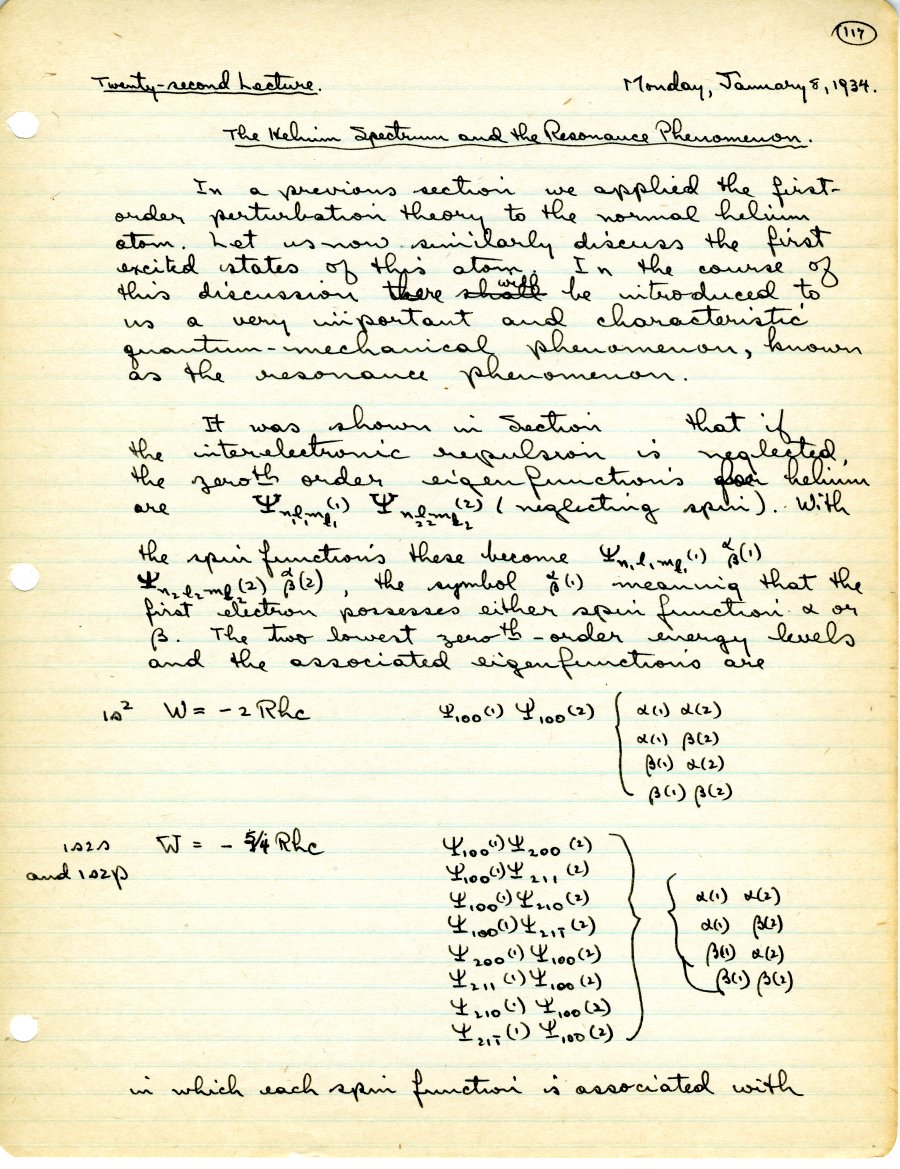 117
Twenty-second Lecture. Monday, January 8, 1934.
The Helium Spectrum and the Resonance Phenomenon.
In a previous section we applied the first-
order perturbation theory to the normal helium
atom. Let us now similarly discuss the first
excited states of this atom. In the course of
this discussion there shall will be introduced to
us a very important and characteristic
quantum-mechanical phenomenon, known
as the resonance phenomenon.
It was shown in Section that if
the interelectronic repulsion is neglected,
the zeroth order eigenfunctions for helium
are Ψn₁l₁ml₁(1) Ψn₂l₂ml₂(2) (neglecting spin). With
the spin functions these become Ψn₁l₁ml₁(1) αβ(1)
Ψn₂l₂ml₂(2) αβ(2), the symbol αβ(1) meaning that the
first electron possesses either spin function α or
β. The two lowest zeroth-order energy levels
and the associated eigenfunctions are
1s² W = -2 Rhc Ψ₁₀₀(1) Ψ₁₀₀(2) { α(1) α(2)
α(1) β(2)
β(1) α(2)
β(1) β(2)
1s2s W = - 5/4 Rhc Ψ₁₀₀(1) Ψ₂₀₀(2)
and 1s2p Ψ₁₀₀(1) Ψ₂₁₁(2)
Ψ₁₀₀(1) Ψ₂₁₀(2) α(1) α(2)
Ψ₁₀₀(1) Ψ₂₁₁̄(2) α(1) β(2)
Ψ₂₀₀(1) Ψ₁₀₀(2) β(1) α(2)
Ψ₂₁₁(1) Ψ₁₀₀(2) β(1) β(2)
Ψ₂₁₀(1) Ψ₁₀₀(2)
Ψ₂₁₁̄(1) Ψ₁₀₀(2)
in which each spin function is associated with